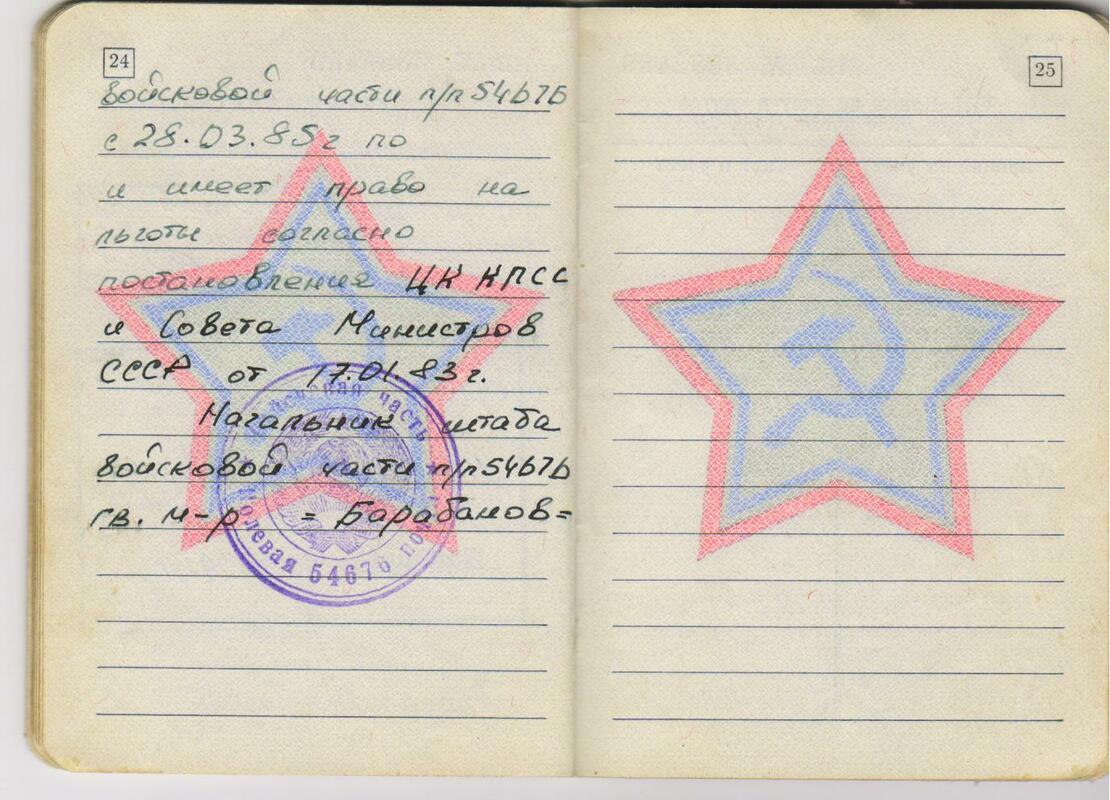 24
войсковой части п/п 54676
с 28.03.85г по
и имеет право на
льготы согласно
постановления ЦК КПСС
и Совета Министров
СССР от 17.01.83г.
Начальник штаба
войсковой части п/п 54676
гв. м-р = Барабанов=
Войсковая часть
Полевая 54676 почта
25